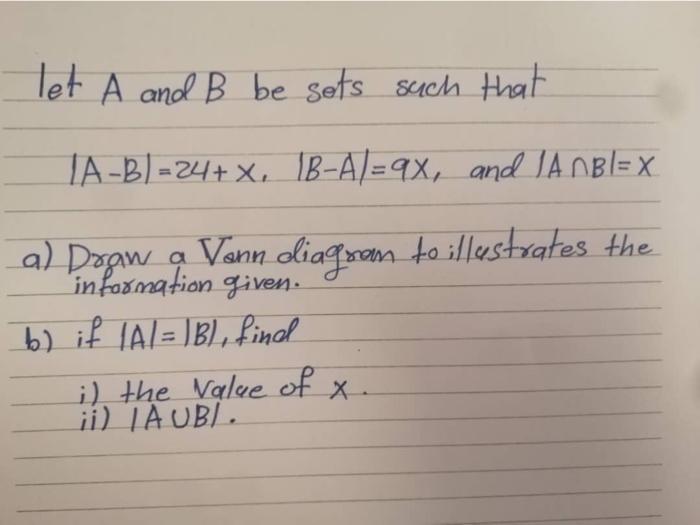 let A and B be sets such that
|A-B|=24+x, |B-A|=9x, and |A∩B|=x
a) Draw a Venn diagram to illustrates the
information given.
b) if |A|=|B|, find
i) the value of x.
ii) |A∪B|.